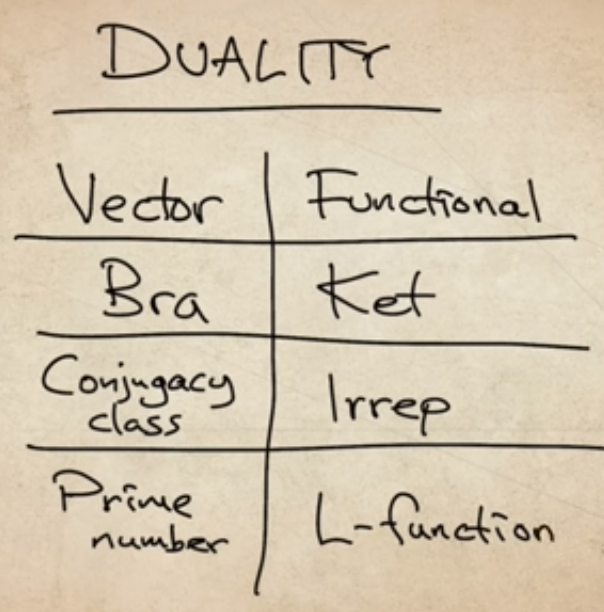 DUALITY
Vector Functional
Bra Ket
Conjugacy
class Irrep
Prime
number L-function